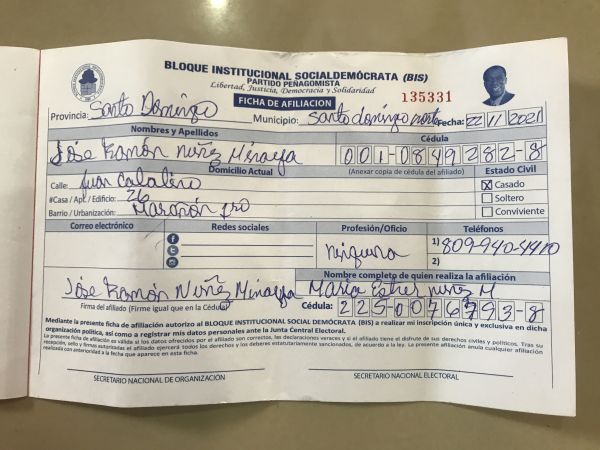 BLOQUE INSTITUCIONAL SOCIALDEMÓCRATA (BIS)
PARTIDO PEÑAGOMISTA
Libertad, Justicia, Democracia y Solidaridad
FICHA DE AFILIACION
135331
Provincia: Santo Domingo Municipio: Santo domingo norte Fecha: 22 11 2021
Nombres y Apellidos Cédula
José Ramón Nuñez Minaya 001-0849282-8
Domicilio Actual (Anexar copia de cédula del afiliado) Estado Civil
Calle: Juan X Casado
#Casa / Apt. / Edificio: 26 Soltero
Barrio / Urbanización: Conviviente
Correo electrónico Redes sociales Profesión/Oficio Teléfonos
ninguna 1) 809-940-4410
2)
Nombre completo de quien realiza la afiliación
José Ramón Nuñez Minaya María Esther nuñez M
Firma del afiliado (Firme igual que en la Cédula) Cédula: 225-0076793-8
Mediante la presente ficha de afiliación autorizo al BLOQUE INSTITUCIONAL SOCIAL DEMÓCRATA (BIS) a realizar mi inscripción única y exclusiva en dicha
organización política, así como a registrar mis datos personales ante la Junta Central Electoral.
La presente ficha de afiliación es válida si los datos ofrecidos por el afiliado son correctos, las declaraciones veraces y si el afiliado tiene el disfrute de sus derechos civiles y políticos. Tras su
recepción, sello y firmas autorizadas el afiliado ejercerá todos los derechos y los deberes estatutariamente sancionados, de acuerdo a la ley. La presente afiliación anula cualquier afiliación
realizada con anterioridad a la fecha que aparece en esta ficha.
SECRETARIO NACIONAL DE ORGANIZACIÓN SECRETARIO NACIONAL ELECTORAL